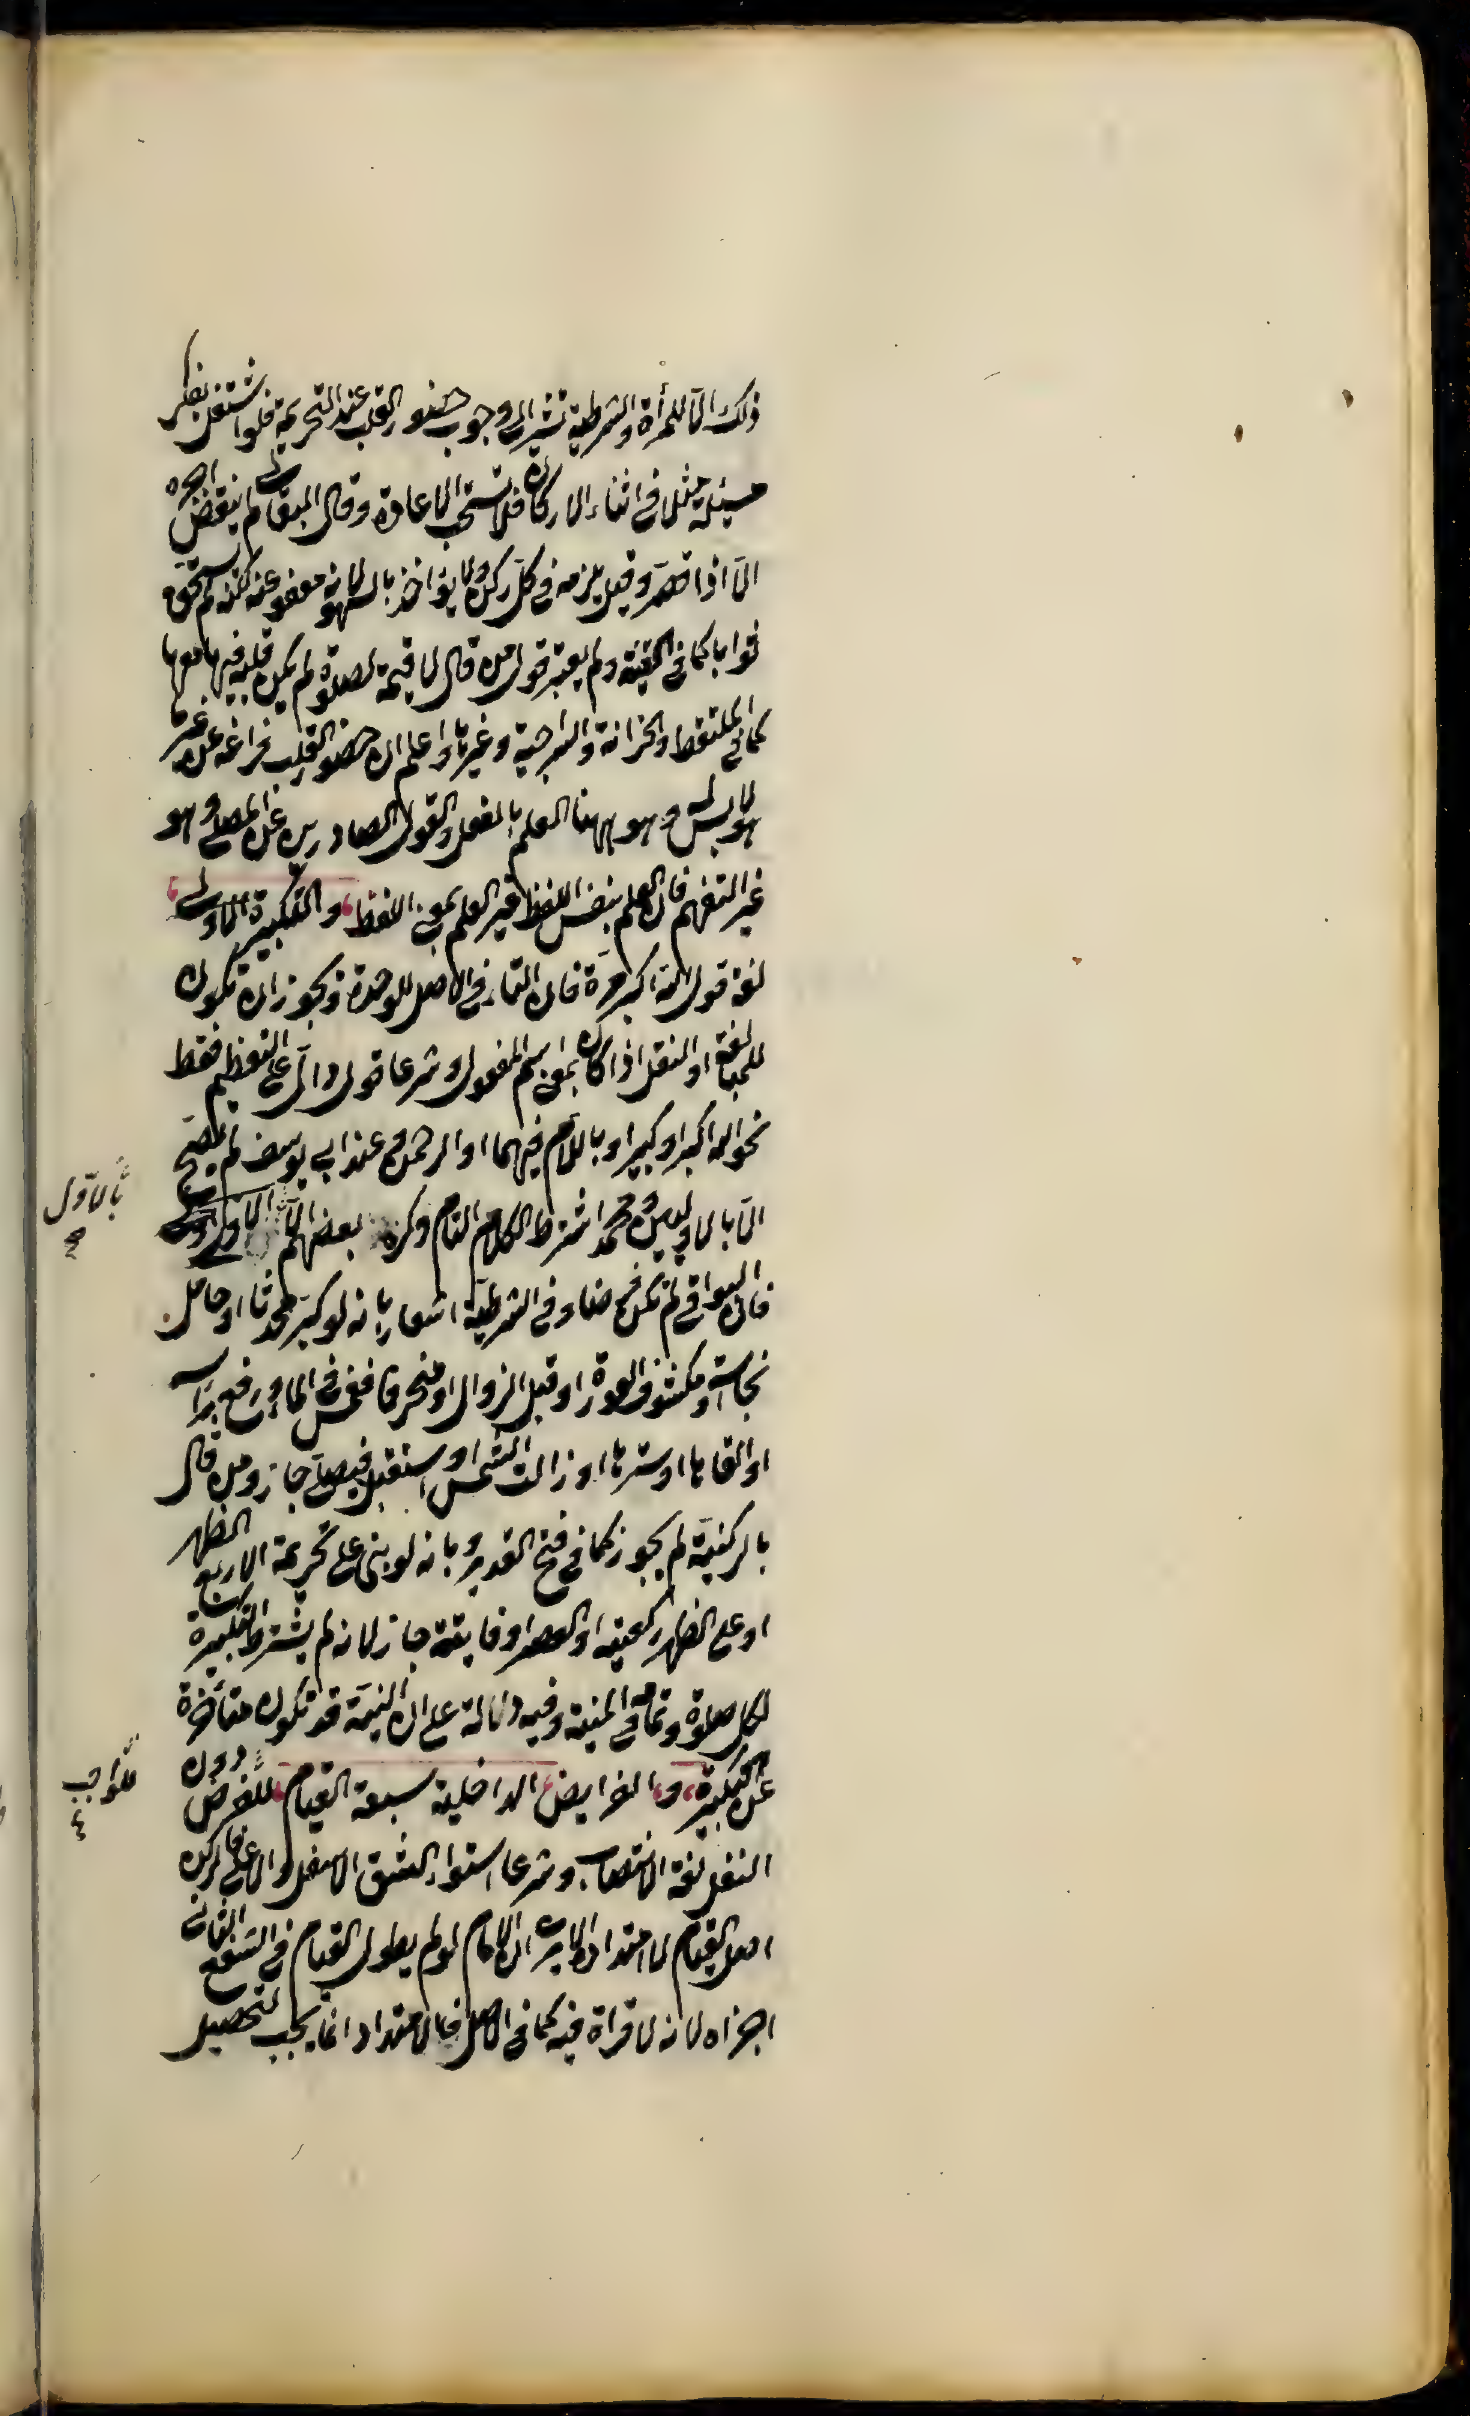 ذلك الا للمرأة والشرطية تشير الى وجوب حضور القلب عند التحريمة فلو اشتغل بفكر
مسئلة مثلا في اثناء الاركان فلا تستحب الاعادة وقال البقالي لم ينقض اجره
الا اذا قصر وقيل يلزمه في كل ركن ولا يؤاخذ بالسهو لانه معفو عنه لكنه لم يستحق
ثوابا كما في المنية ولم يعتبر قول من قال لا قيمة لصلوة لم يكن قلبه فيها معها
كما في الملتقط والخزانة والسراجية وغيرها واعلم ان حضور القلب فراغه عن غير ما
هو ملابس له وهو ههنا العلم بالفعل والقول الصادرين عن المصلي وهو
غير التفهم فان العلم بنفس اللفظ غير العلم بمعنى اللفظ والتكبيرة الاولى
لغة قول الله اكبر مرة فان التاء في الاصل للوحدة ويجوز ان تكون
للمبالغة او النقل اذا كان بمعنى اسم المفعول وشرعا قول دال على التعظيم فقط
نحو الله اكبر او كبير او باللام فيهما او الرحمن وعند ابي يوسف لم يصح
الا بالاوليين ومحمد اشترط الكلام التام وكره بعضهم الا الاولى
فان البواقي لم تكن فرضا وفي الشرطية اشعار بانه لو كبر محدثا او حامل
نجاسة او مكشوف العورة او قبل الزوال او منحرفا فغمس في الماء ورفع رأسه
او القاها او سترها او زالت الشمس او استقبل فيصلي جاز ومن قال
بالركنية لم يجوز كما في فتح القدير وبانه لو بنى على تحريمة الاربع الظهر
او على الظهر ركعتيه او العصر او فايتة جاز لانه لم يشترط التكبيرة
لكل صلوة وتمامه في المنية وفيه دلالة على ان النية قد تكون متأخرة
عن التكبيرة والفرايض الداخلية سبعة القيام للفرض دون
النفل لغة الانتصاب وشرعا استواء الشق الاسفل والاعلى فالركن
اصل القيام لا امتداده الا يرى ان الامام لو لم يطول القيام في الشفع الثاني
اجزاه لانه لا قراة فيه كما في الاصل فالامتداد انما يجب لتحصيل
بالاول
صح
للواجب